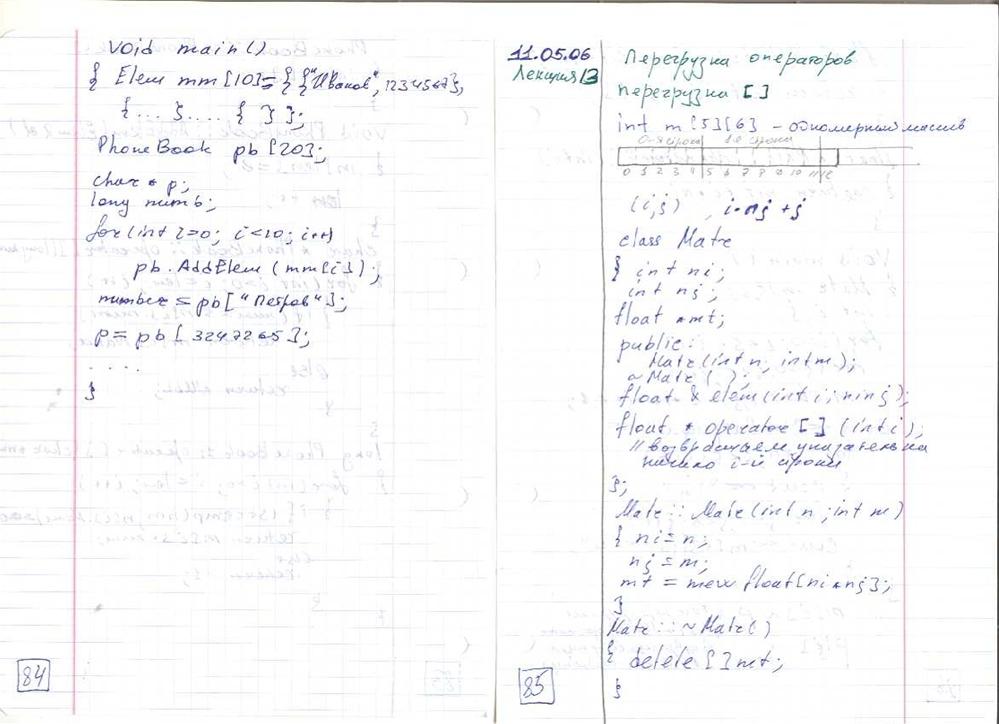 void main()
{ Elem mm[10]={ {"Иванов", 1234567},
{ ... }.... { } };
PhoneBook pb[20];
char * p;
long numb;
for(int i=0; i<10; i++)
pb.AddElem(mm[i]);
number = pb["Петров"];
p = pb[3247265];
. . . .
}
84
11.05.06
Лекция 13
Перегрузка операторов
перегрузка []
int m[5][6] - одномерный массив
0-я строка 1-я строка
0 1 2 3 4 5 6 7 8 9 10 11 12
(i,j) , i*nj + j
class Matr
{ int ni;
int nj;
float *mt;
public:
Matr(int n, int m);
~Matr();
float & elem(int i;
float * operator [] (int i);
// возвращаем указатель на
начало i-й строки
};
Matr :: Matr(int n; int m)
{ ni = n;
nj = m;
mt = new float[ni*nj];
}
Matr :: ~Matr()
{ delete []mt;
}
85